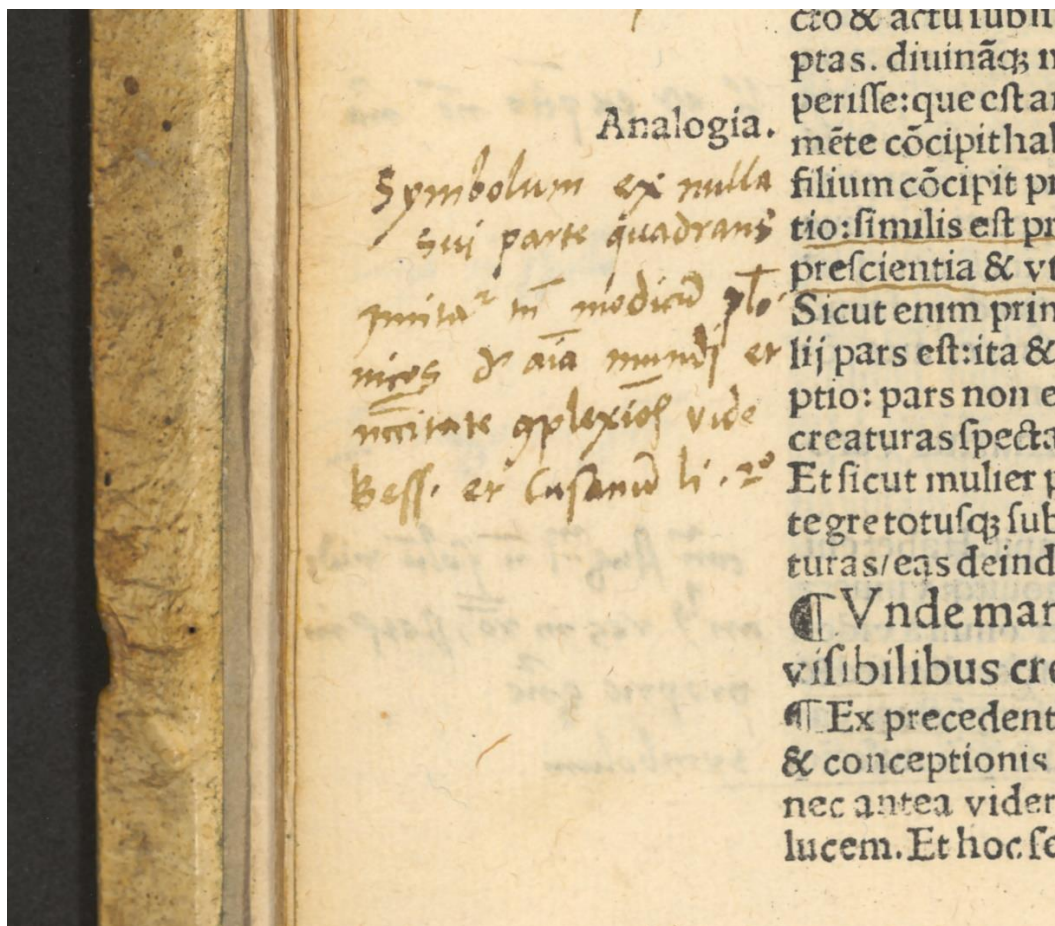 Analogia.
Symbolum ex nulla
sui parte quadrans
imitať tñ modicũ plõ
nicos ď aĩa mundj et
nccitate ꝯplexioꝝ vide
Bess. et Cusanũ li. 2º
cto & actu subli
ptas. diuinãqꝫ n
perisse: que est an
mẽte cõcipit hab
filium cõcipit pr
tio: similis est pr
prescientia & vt
Sicut enim prin
lij pars est: ita &
ptio: pars non e
creaturas specta
Et sicut mulier p
tegre totusqꝫ sub
turas/ eas deind
¶ Vnde man
visibilibus cre
¶ Ex precedent
& conceptionis
nec antea vider
lucem. Et hoc se